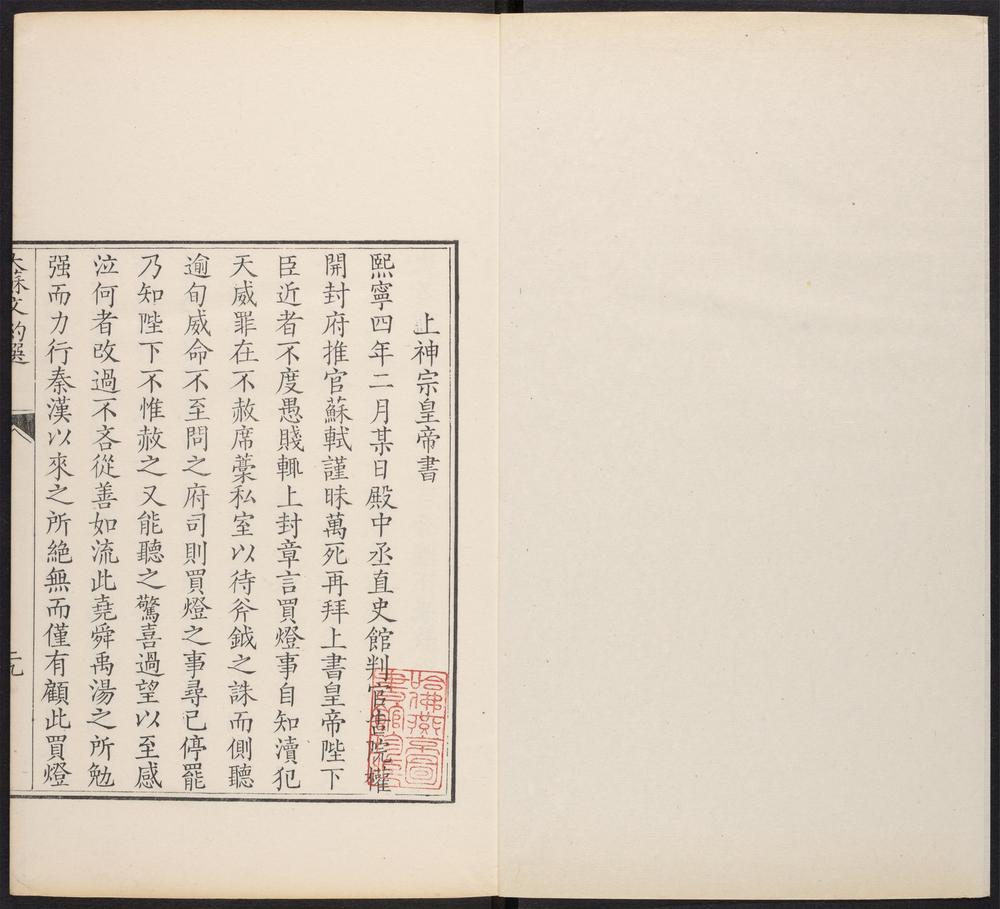 上神宗皇帝書
熙寧四年二月某日殿中丞直史館判官告院權
開封府推官蘇軾謹昧萬死再拜上書皇帝陛下
臣近者不度愚賤輒上封章言買燈事自知瀆犯
天威罪在不赦席藁私室以待斧鉞之誅而側聽
逾旬威命不至問之府司則買燈之事尋已停罷
乃知陛下不惟赦之又能聽之驚喜過望以至感
泣何者改過不吝從善如流此堯舜禹湯之所勉
强而力行秦漢以來之所絕無而僅有顧此買燈
大蘇文約選
元
哈佛燕京圖書館珍藏